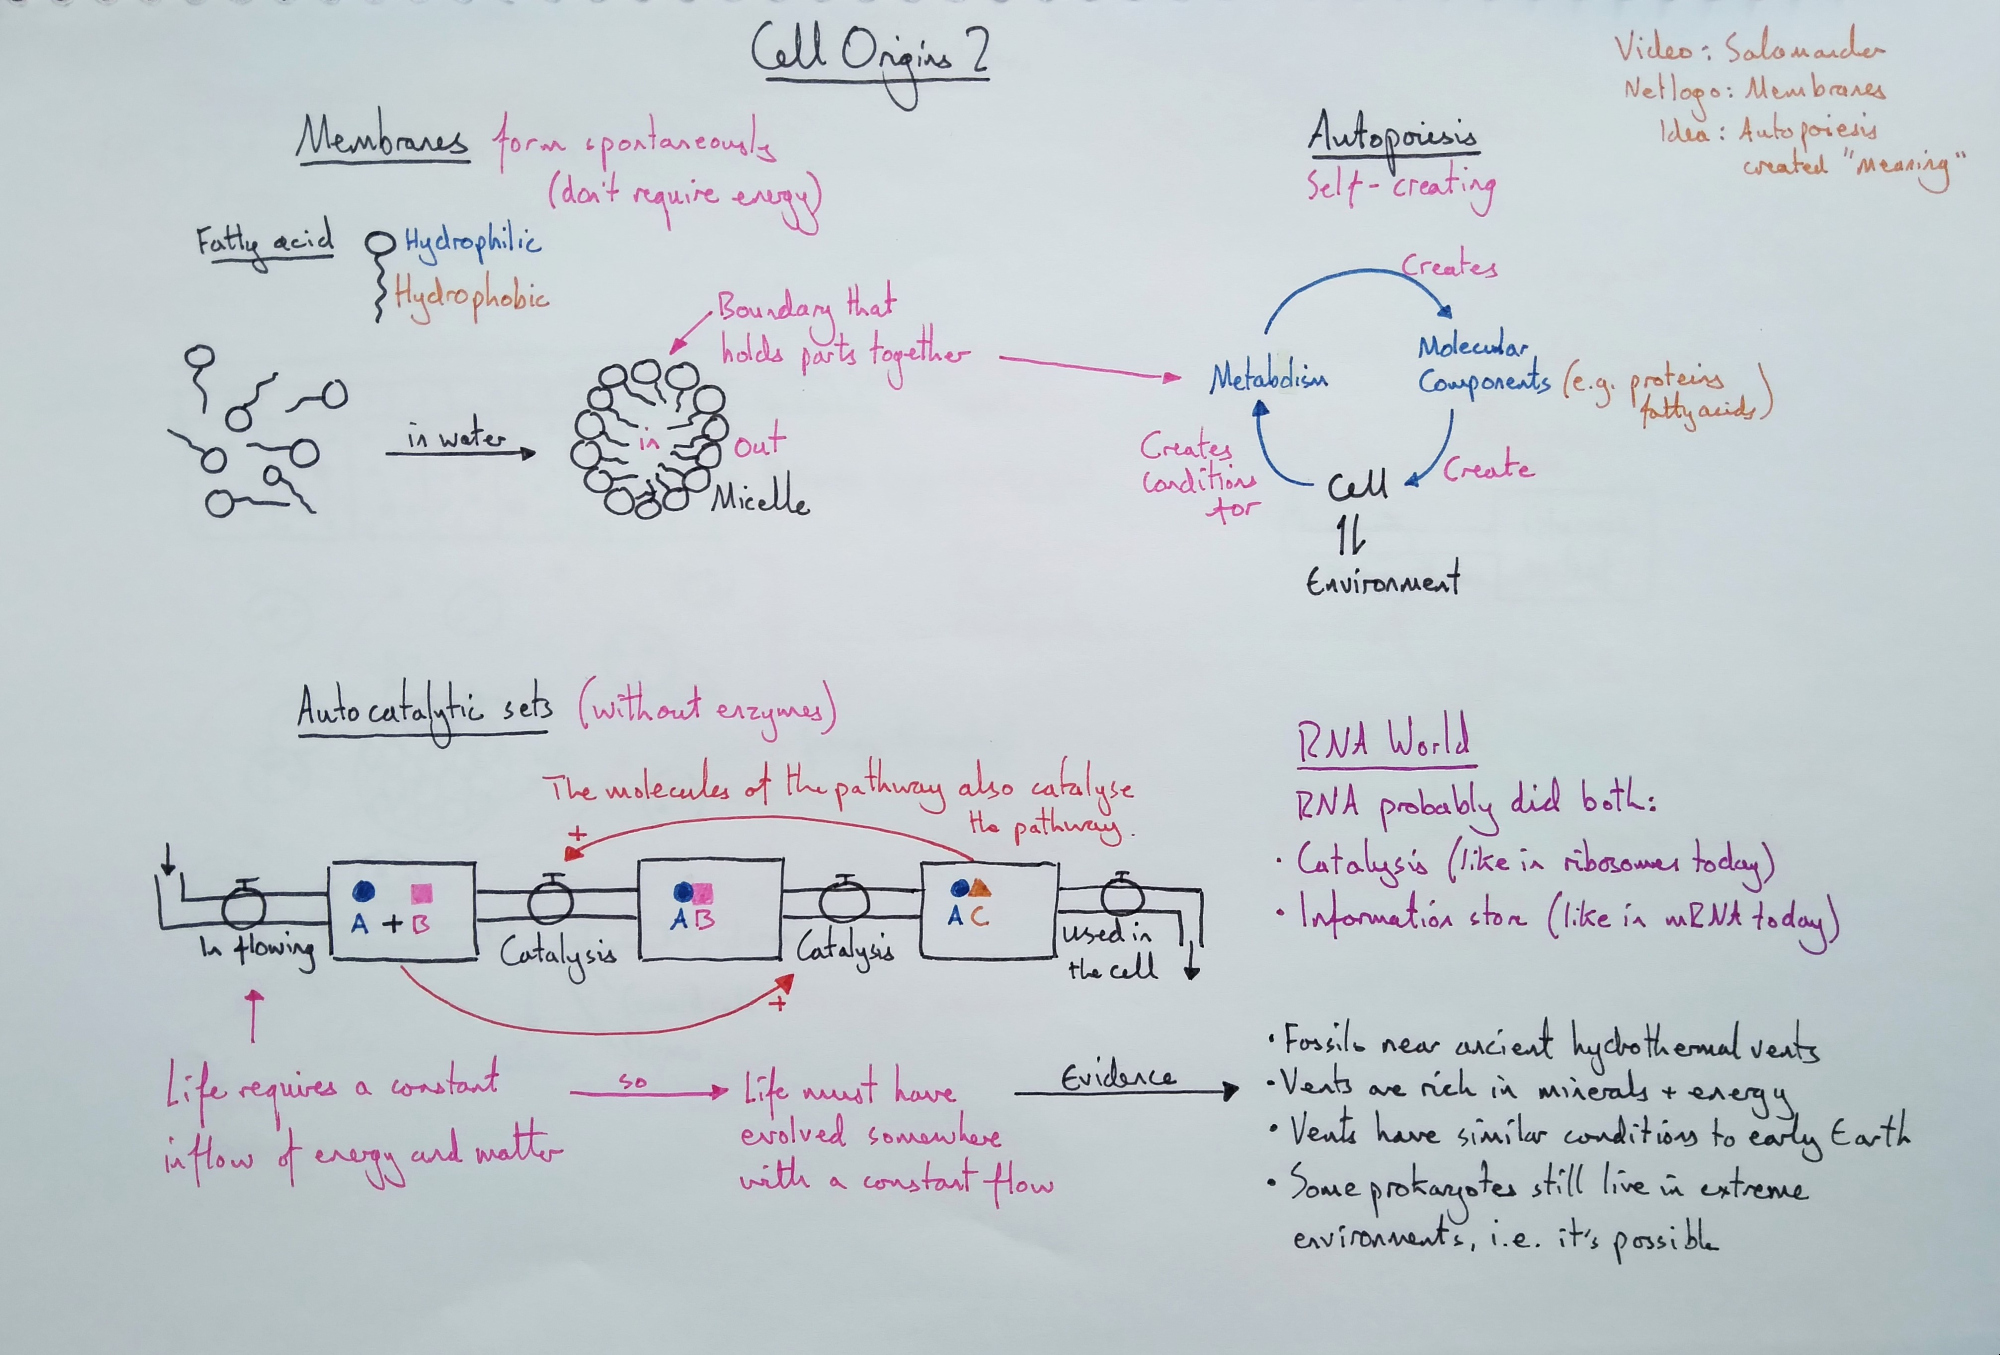 Cell Origins 2
Video: Salamander
Netlogo: Membranes
Idea: Autopoiesis
created "meaning"
Membranes form spontaneously
(don't require energy)
Fatty acid
Hydrophilic
Hydrophobic
Boundary that
holds parts together
in water
in
out
Micelle
Autopoiesis
Self-creating
Creates
Metabolism
Molecular
Components (e.g. proteins
fatty acids)
Creates
Conditions
for
Create
Cell
Environment
Autocatalytic sets (without enzymes)
The molecules of the pathway also catalyse
the pathway.
+
A + B
A B
A C
In flowing
Catalysis
Catalysis
used in
the cell
+
Life requires a constant
inflow of energy and matter
so
Life must have
evolved somewhere
with a constant flow
Evidence
RNA World
RNA probably did both:
· Catalysis (like in ribosomes today)
· Information store (like in mRNA today)
· Fossils near ancient hydrothermal vents
· Vents are rich in minerals + energy
· Vents have similar conditions to early Earth
· Some prokaryotes still live in extreme
environments, i.e. it's possible